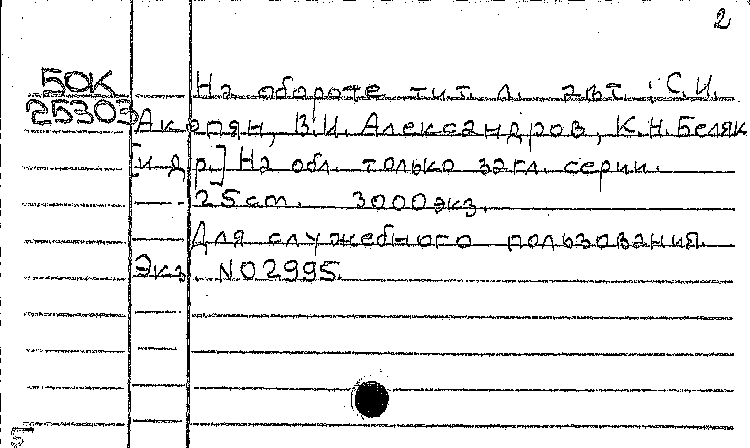 2
БОК
25303
На обороте тит. л. авт.: С.И.
Акопян, В.И. Александров, К.Н. Беляк
[и др.] На обл. только загл. серии.
25 см. 3000 экз.
Для служебного пользования.
Экз. N02995.
5